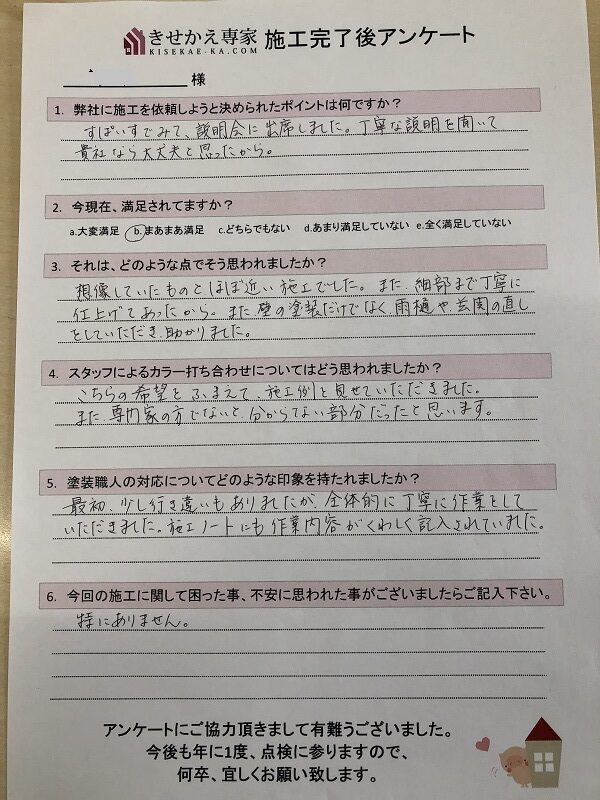 きせかえ専家 施工完了後アンケート
KISEKAE-KA.COM
様
1. 弊社に施工を依頼しようと決められたポイントは何ですか?
すぱいすでみて、説明会に出席しました。丁寧な説明を聞いて
貴社なら大丈夫と思ったから。
2. 今現在、満足されてますか?
a.大変満足 b.まあまあ満足 c.どちらでもない d.あまり満足していない e.全く満足していない
3. それは、どのような点でそう思われましたか?
想像していたものとほぼ近い施工でした。また、細部まで丁寧に
仕上げてあったから。また壁の塗装だけでなく、雨樋や玄関の直し
をしていただき助かりました。
4. スタッフによるカラー打ち合わせについてはどう思われましたか?
こちらの希望をふまえて、施工例を見せていただきました。
また、専門家の方でないと、分からない部分だったと思います。
5. 塗装職人の対応についてどのような印象を持たれましたか?
最初、少し行き違いもありましたが、全体的に丁寧に作業をして
いただきました。施工ノートにも作業内容がくわしく記入されていました。
6. 今回の施工に関して困った事、不安に思われた事がございましたらご記入下さい。
特にありません。
アンケートにご協力頂きまして有難うございました。
今後も年に1度、点検に参りますので、
何卒、宜しくお願い致します。